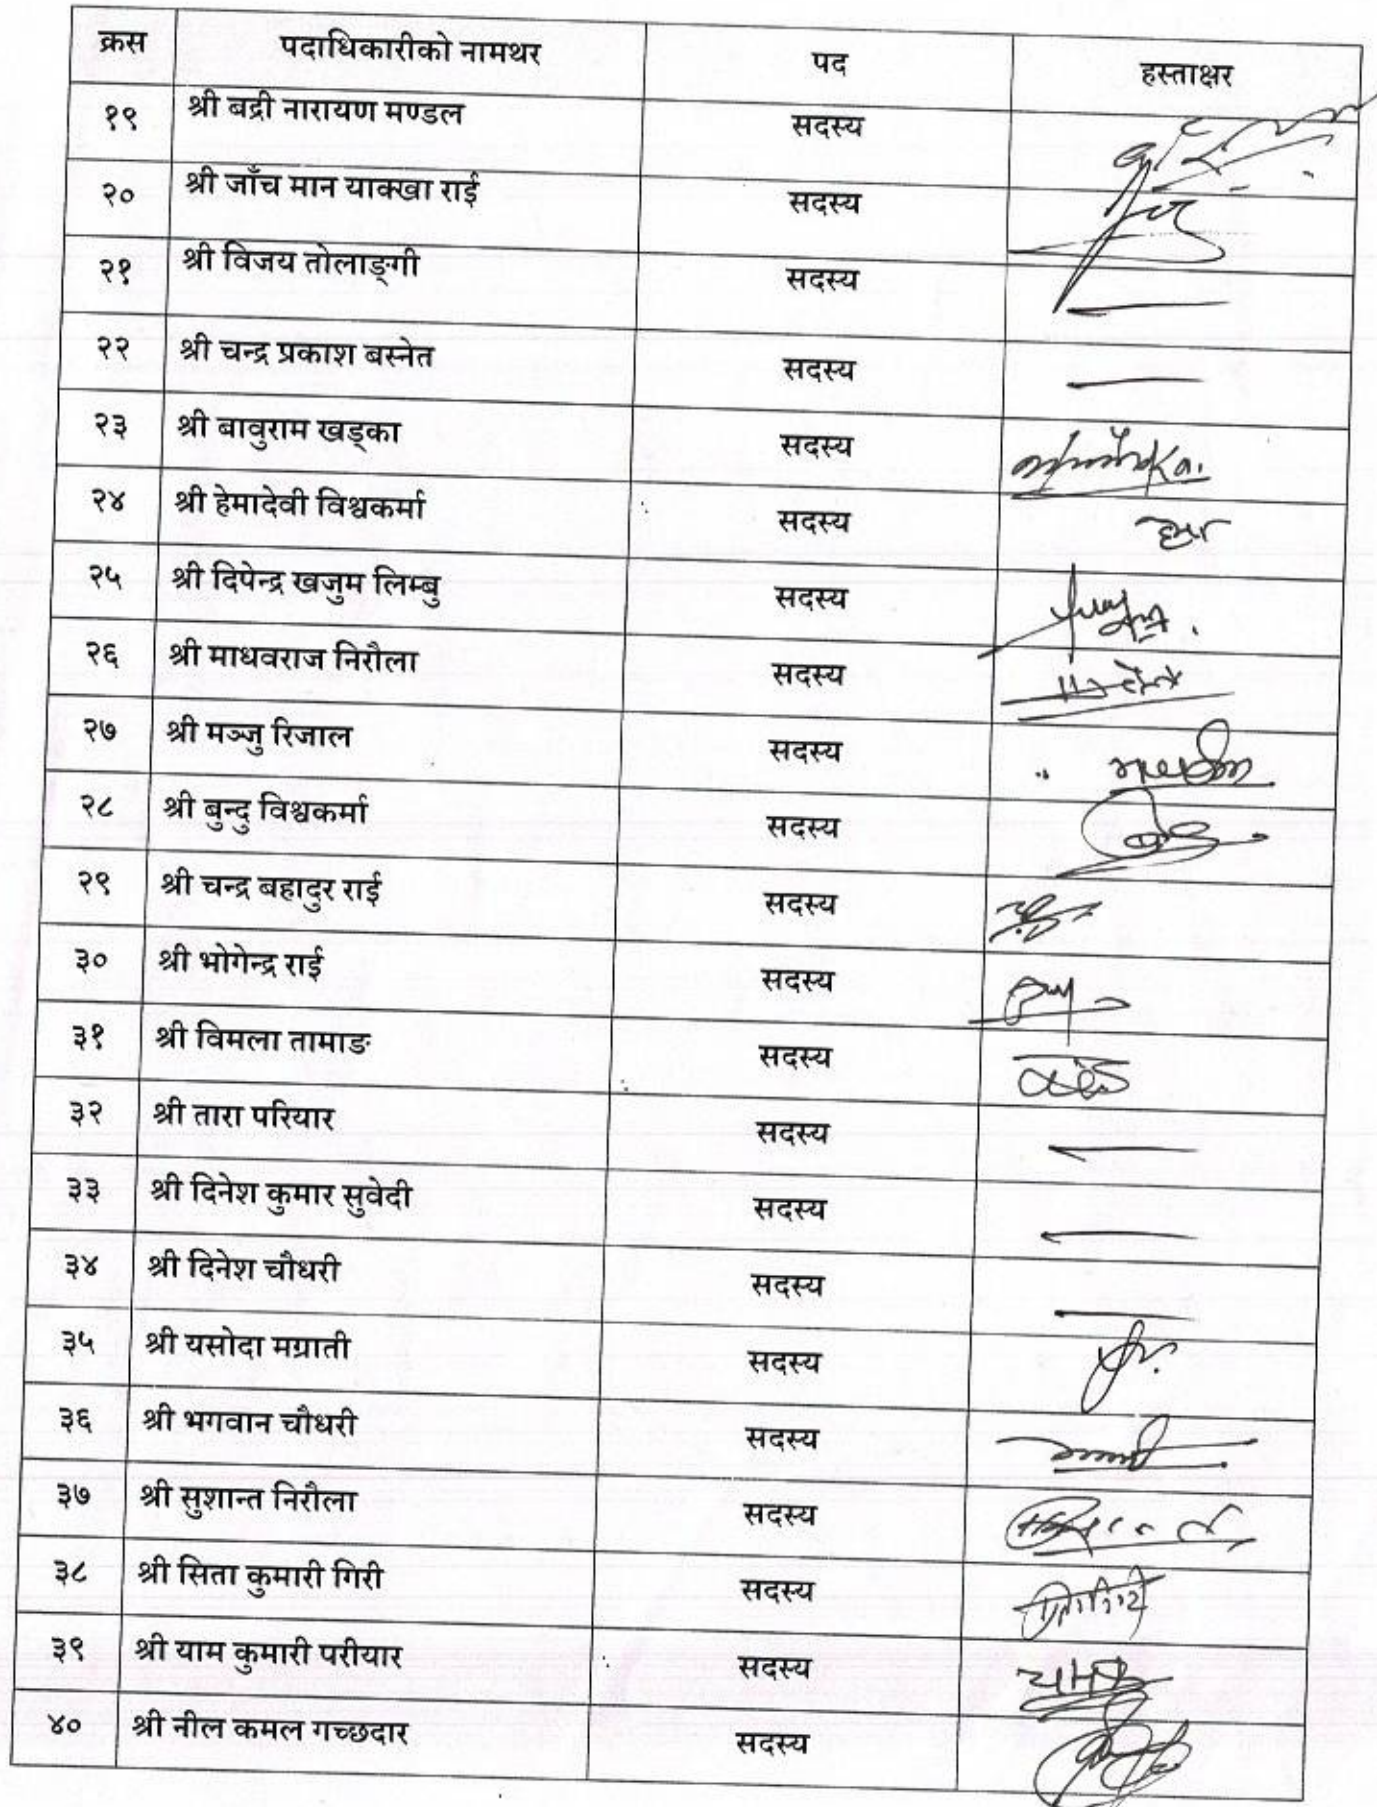 क्रस पदाधिकारीको नामथर पद हस्ताक्षर
१९ श्री बद्री नारायण मण्डल सदस्य
२० श्री जाँच मान याक्खा राई सदस्य
२१ श्री विजय तोलाङ्गी सदस्य
२२ श्री चन्द्र प्रकाश बस्नेत सदस्य
२३ श्री बावुराम खड्का सदस्य
२४ श्री हेमादेवी विश्वकर्मा सदस्य
२५ श्री दिपेन्द्र खजुम लिम्बु सदस्य
२६ श्री माधवराज निरौला सदस्य
२७ श्री मञ्जु रिजाल सदस्य
२८ श्री बुन्दु विश्वकर्मा सदस्य
२९ श्री चन्द्र बहादुर राई सदस्य
३० श्री भोगेन्द्र राई सदस्य
३१ श्री विमला तामाङ सदस्य
३२ श्री तारा परियार सदस्य
३३ श्री दिनेश कुमार सुवेदी सदस्य
३४ श्री दिनेश चौधरी सदस्य
३५ श्री यसोदा मग्राती सदस्य
३६ श्री भगवान चौधरी सदस्य
३७ श्री सुशान्त निरौला सदस्य
३८ श्री सिता कुमारी गिरी सदस्य
३९ श्री याम कुमारी परीयार सदस्य
४० श्री नील कमल गच्छदार सदस्य